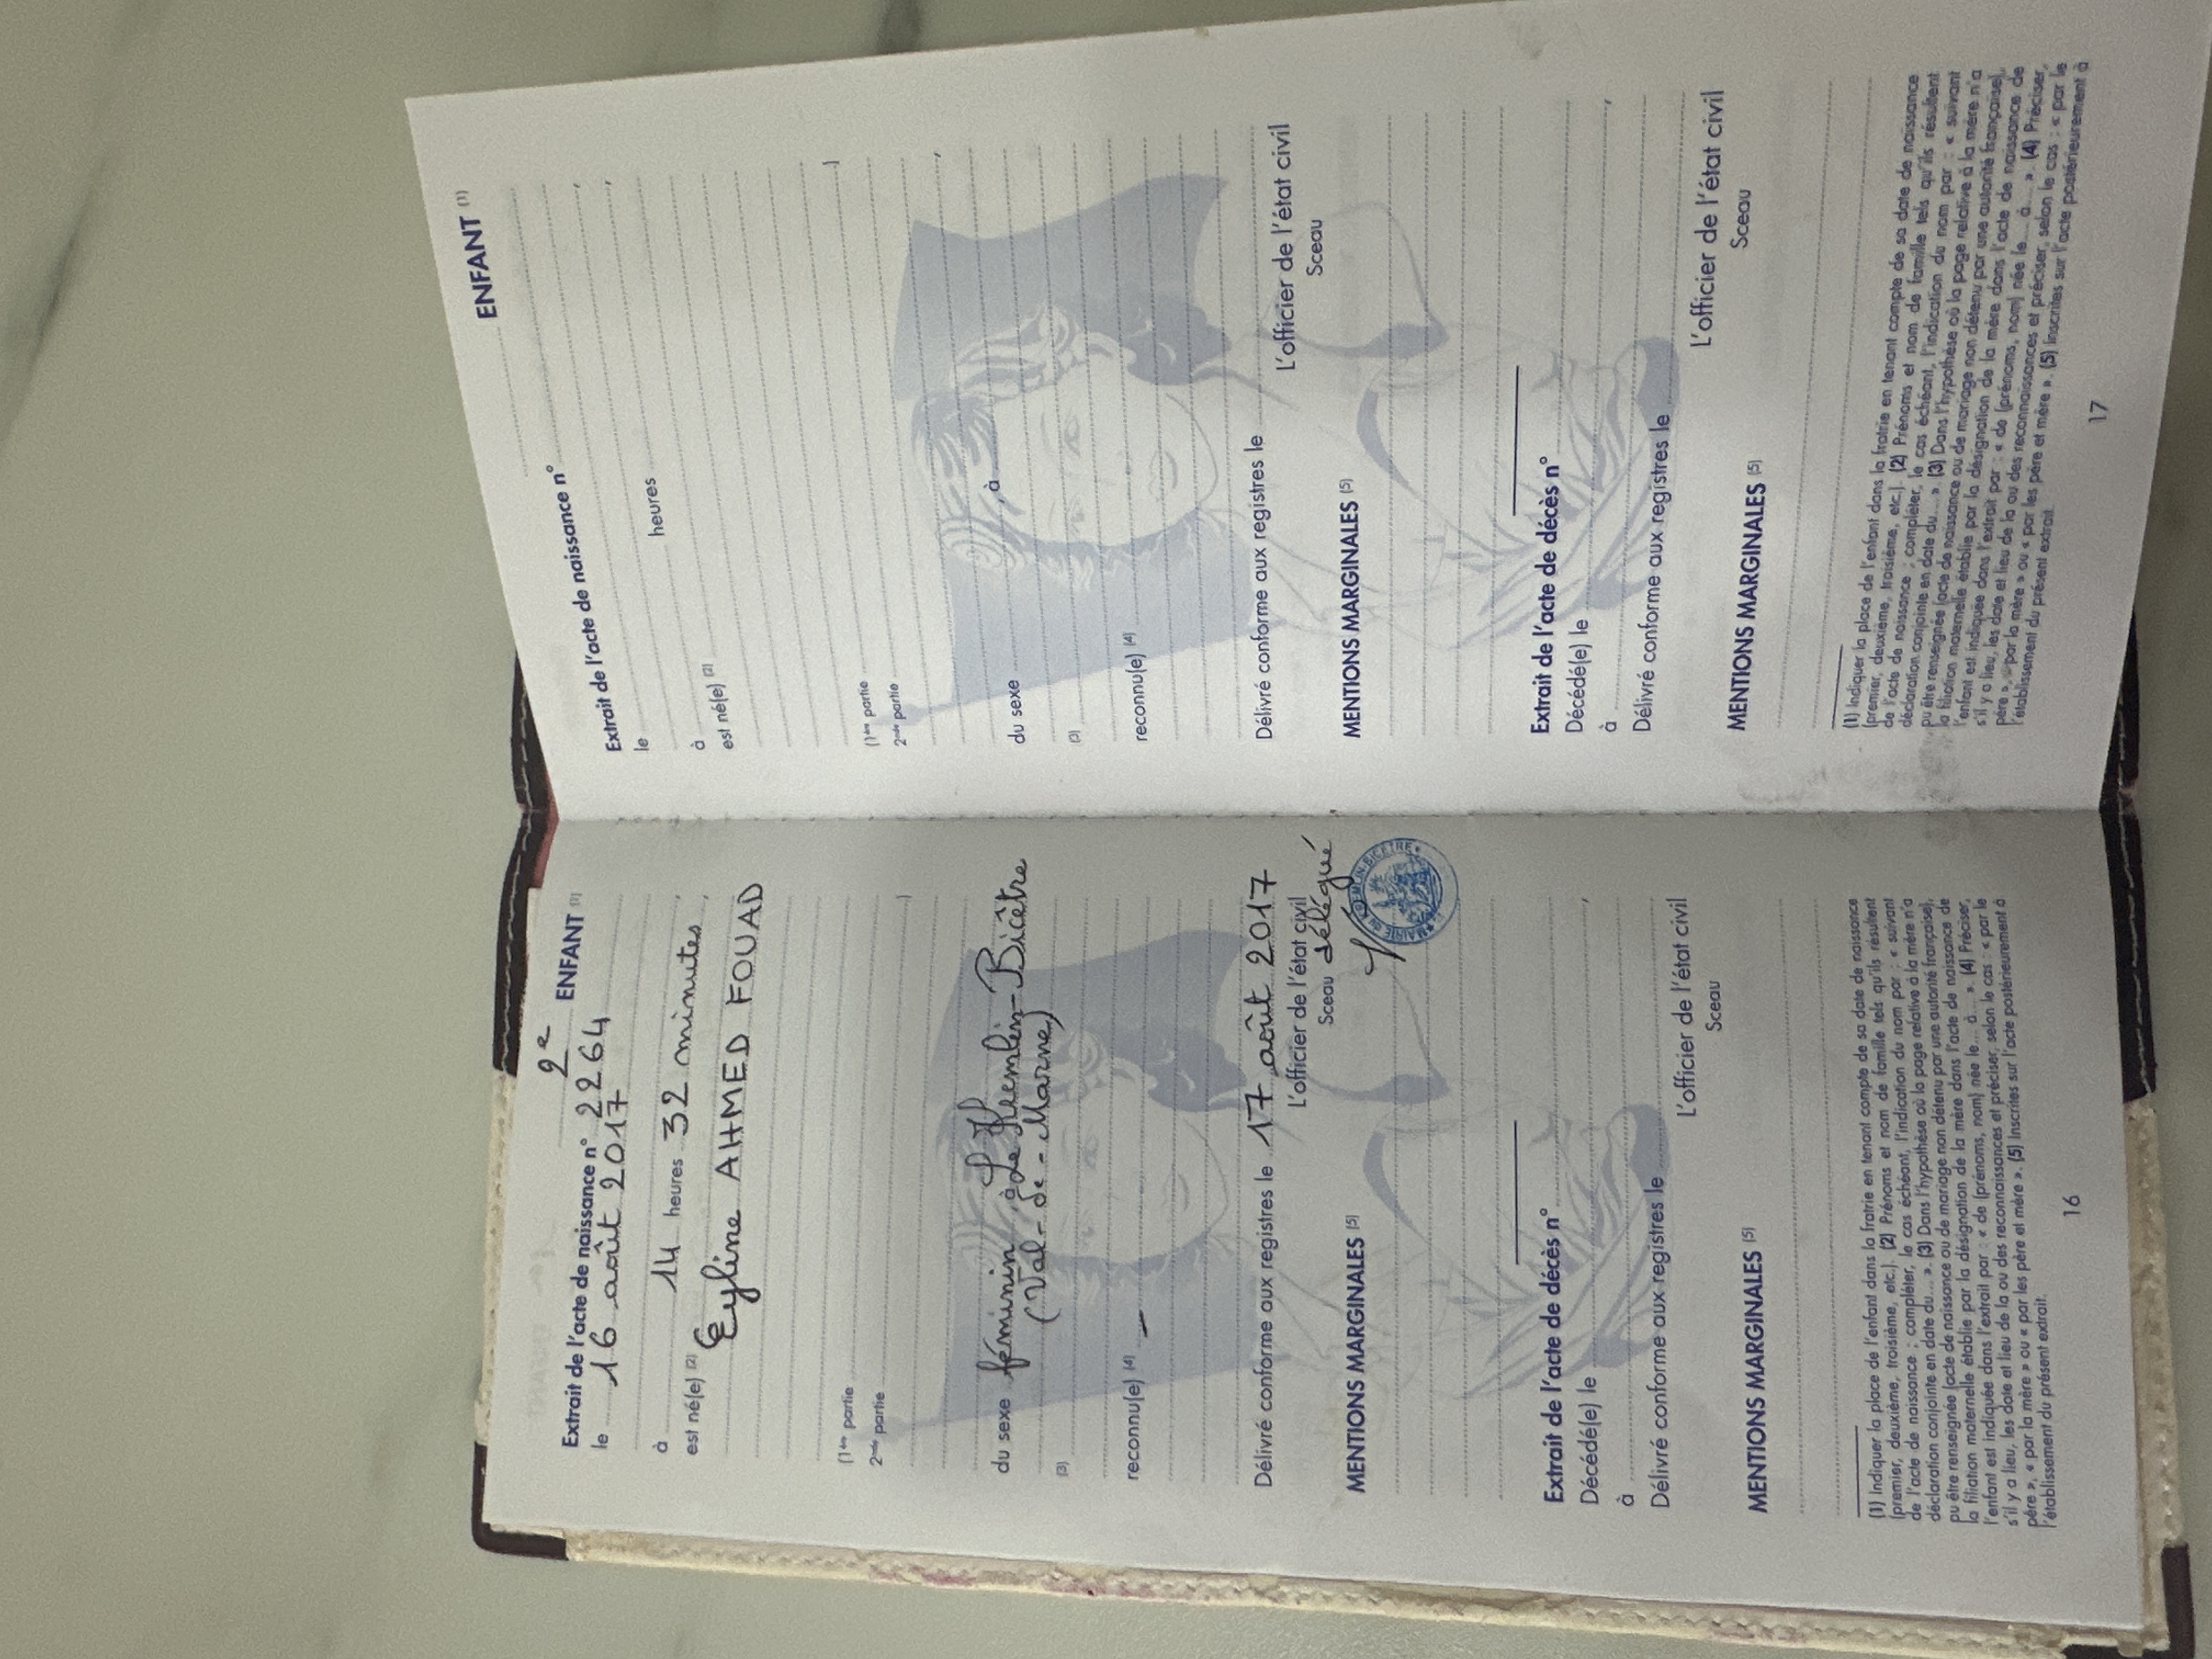 2e ENFANT (1)
Extrait de l'acte de naissance n° 2264
le 16 août 2017
à 14 heures 32 minutes,
est né(e) (2) ,
Eyline AHMED FOUAD
(1ère partie
2nde partie )
du sexe féminin, à Le Kremlin-Bicêtre
(3) (Val-de-Marne)
reconnu(e) (4) –
Délivré conforme aux registres le 17 août 2017
L'officier de l'état civil
Sceau délégué
MAIRIE du KREMLIN-BICETRE
MENTIONS MARGINALES (5)
Extrait de l'acte de décès n°
Décédé(e) le ,
à
Délivré conforme aux registres le
L'officier de l'état civil
Sceau
MENTIONS MARGINALES (5)
(1) Indiquer la place de l'enfant dans la fratrie en tenant compte de sa date de naissance
(premier, deuxième, troisième, etc.). (2) Prénoms et nom de famille tels qu'ils résultent
de l'acte de naissance ; compléter, le cas échéant, l'indication du nom par : « suivant
déclaration conjointe en date du... ». (3) Dans l'hypothèse où la page relative à la mère n'a
pu être renseignée (acte de naissance ou de mariage non détenu par une autorité française),
la filiation maternelle établie par la désignation de la mère dans l'acte de naissance de
l'enfant est indiquée dans l'extrait par : « de (prénoms, nom) née le... à... ». (4) Préciser,
s'il y a lieu, les date et lieu de la ou des reconnaissances et préciser, selon le cas : « par le
père », « par la mère » ou « par les père et mère ». (5) Inscrites sur l'acte postérieurement à
l'établissement du présent extrait.
16
ENFANT (1)
Extrait de l'acte de naissance n°
le ,
heures ,
à
est né(e) (2)
(1ère partie )
2nde partie
,
du sexe , à
(3)
reconnu(e) (4)
Délivré conforme aux registres le
L'officier de l'état civil
Sceau
MENTIONS MARGINALES (5)
Extrait de l'acte de décès n°
Décédé(e) le
à ,
Délivré conforme aux registres le
L'officier de l'état civil
Sceau
MENTIONS MARGINALES (5)
(1) Indiquer la place de l'enfant dans la fratrie en tenant compte de sa date de naissance
(premier, deuxième, troisième, etc.). (2) Prénoms et nom de famille tels qu'ils résultent
de l'acte de naissance ; compléter, le cas échéant, l'indication du nom par : « suivant
déclaration conjointe en date du... ». (3) Dans l'hypothèse où la page relative à la mère n'a
pu être renseignée (acte de naissance ou de mariage non détenu par une autorité française),
la filiation maternelle établie par la désignation de la mère dans l'acte de naissance de
l'enfant est indiquée dans l'extrait par : « de (prénoms, nom) née le... à... ». (4) Préciser,
s'il y a lieu, les date et lieu de la ou des reconnaissances et préciser, selon le cas : « par le
père », « par la mère » ou « par les père et mère ». (5) Inscrites sur l'acte postérieurement à
l'établissement du présent extrait.
17